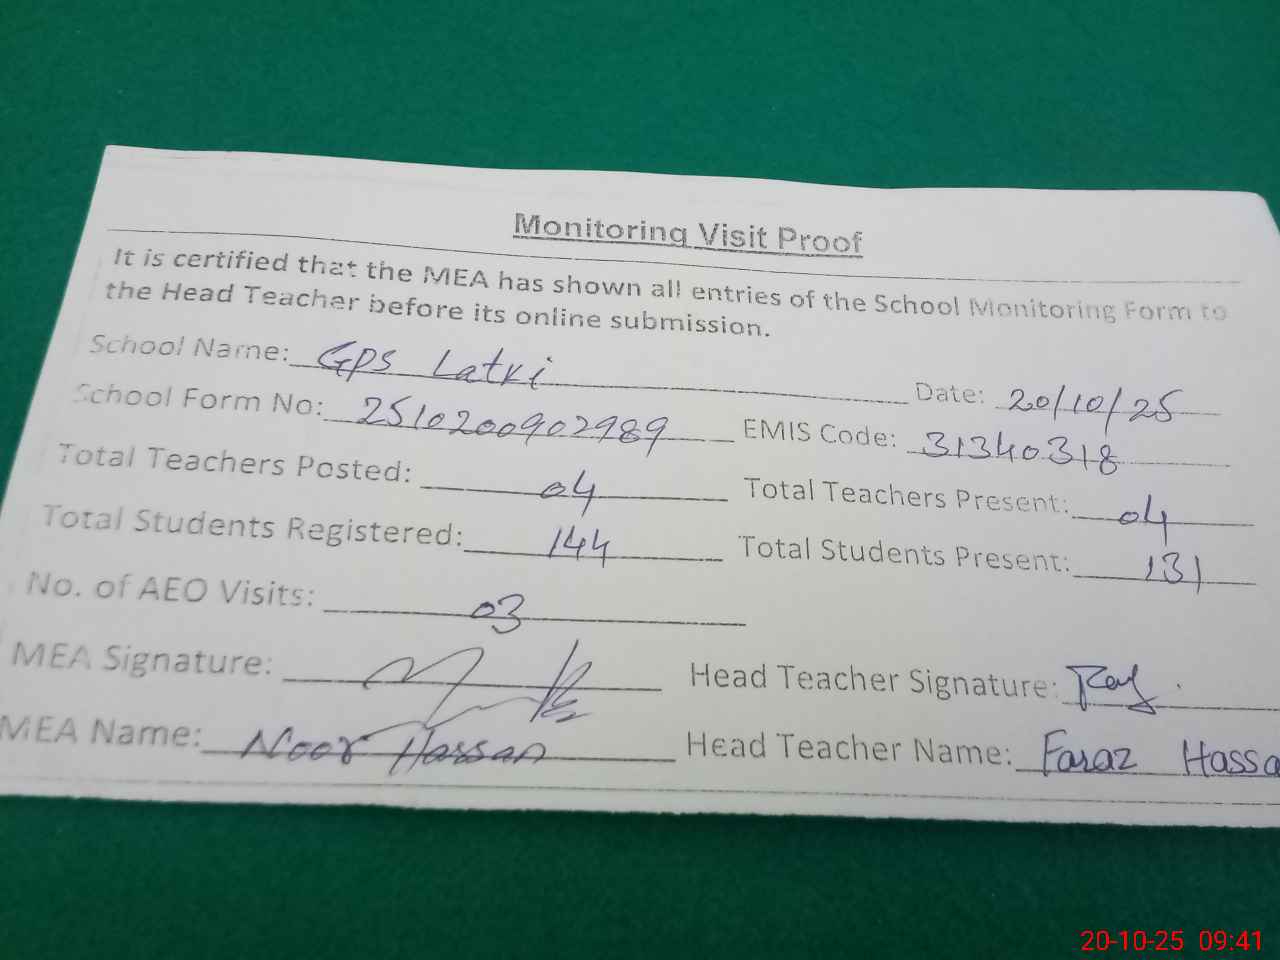 Monitoring Visit Proof
It is certified that the MEA has shown all entries of the School Monitoring Form to
the Head Teacher before its online submission.
School Name: GPS Latki Date: 20/10/25
School Form No: 2510200902989 EMIS Code: 31340318
Total Teachers Posted: 04 Total Teachers Present: 04
Total Students Registered: 144 Total Students Present: 131
No. of AEO Visits: 03
MEA Signature: Head Teacher Signature:
MEA Name: Noor Hassan Head Teacher Name: Faraz Hassa
20-10-25 09:41